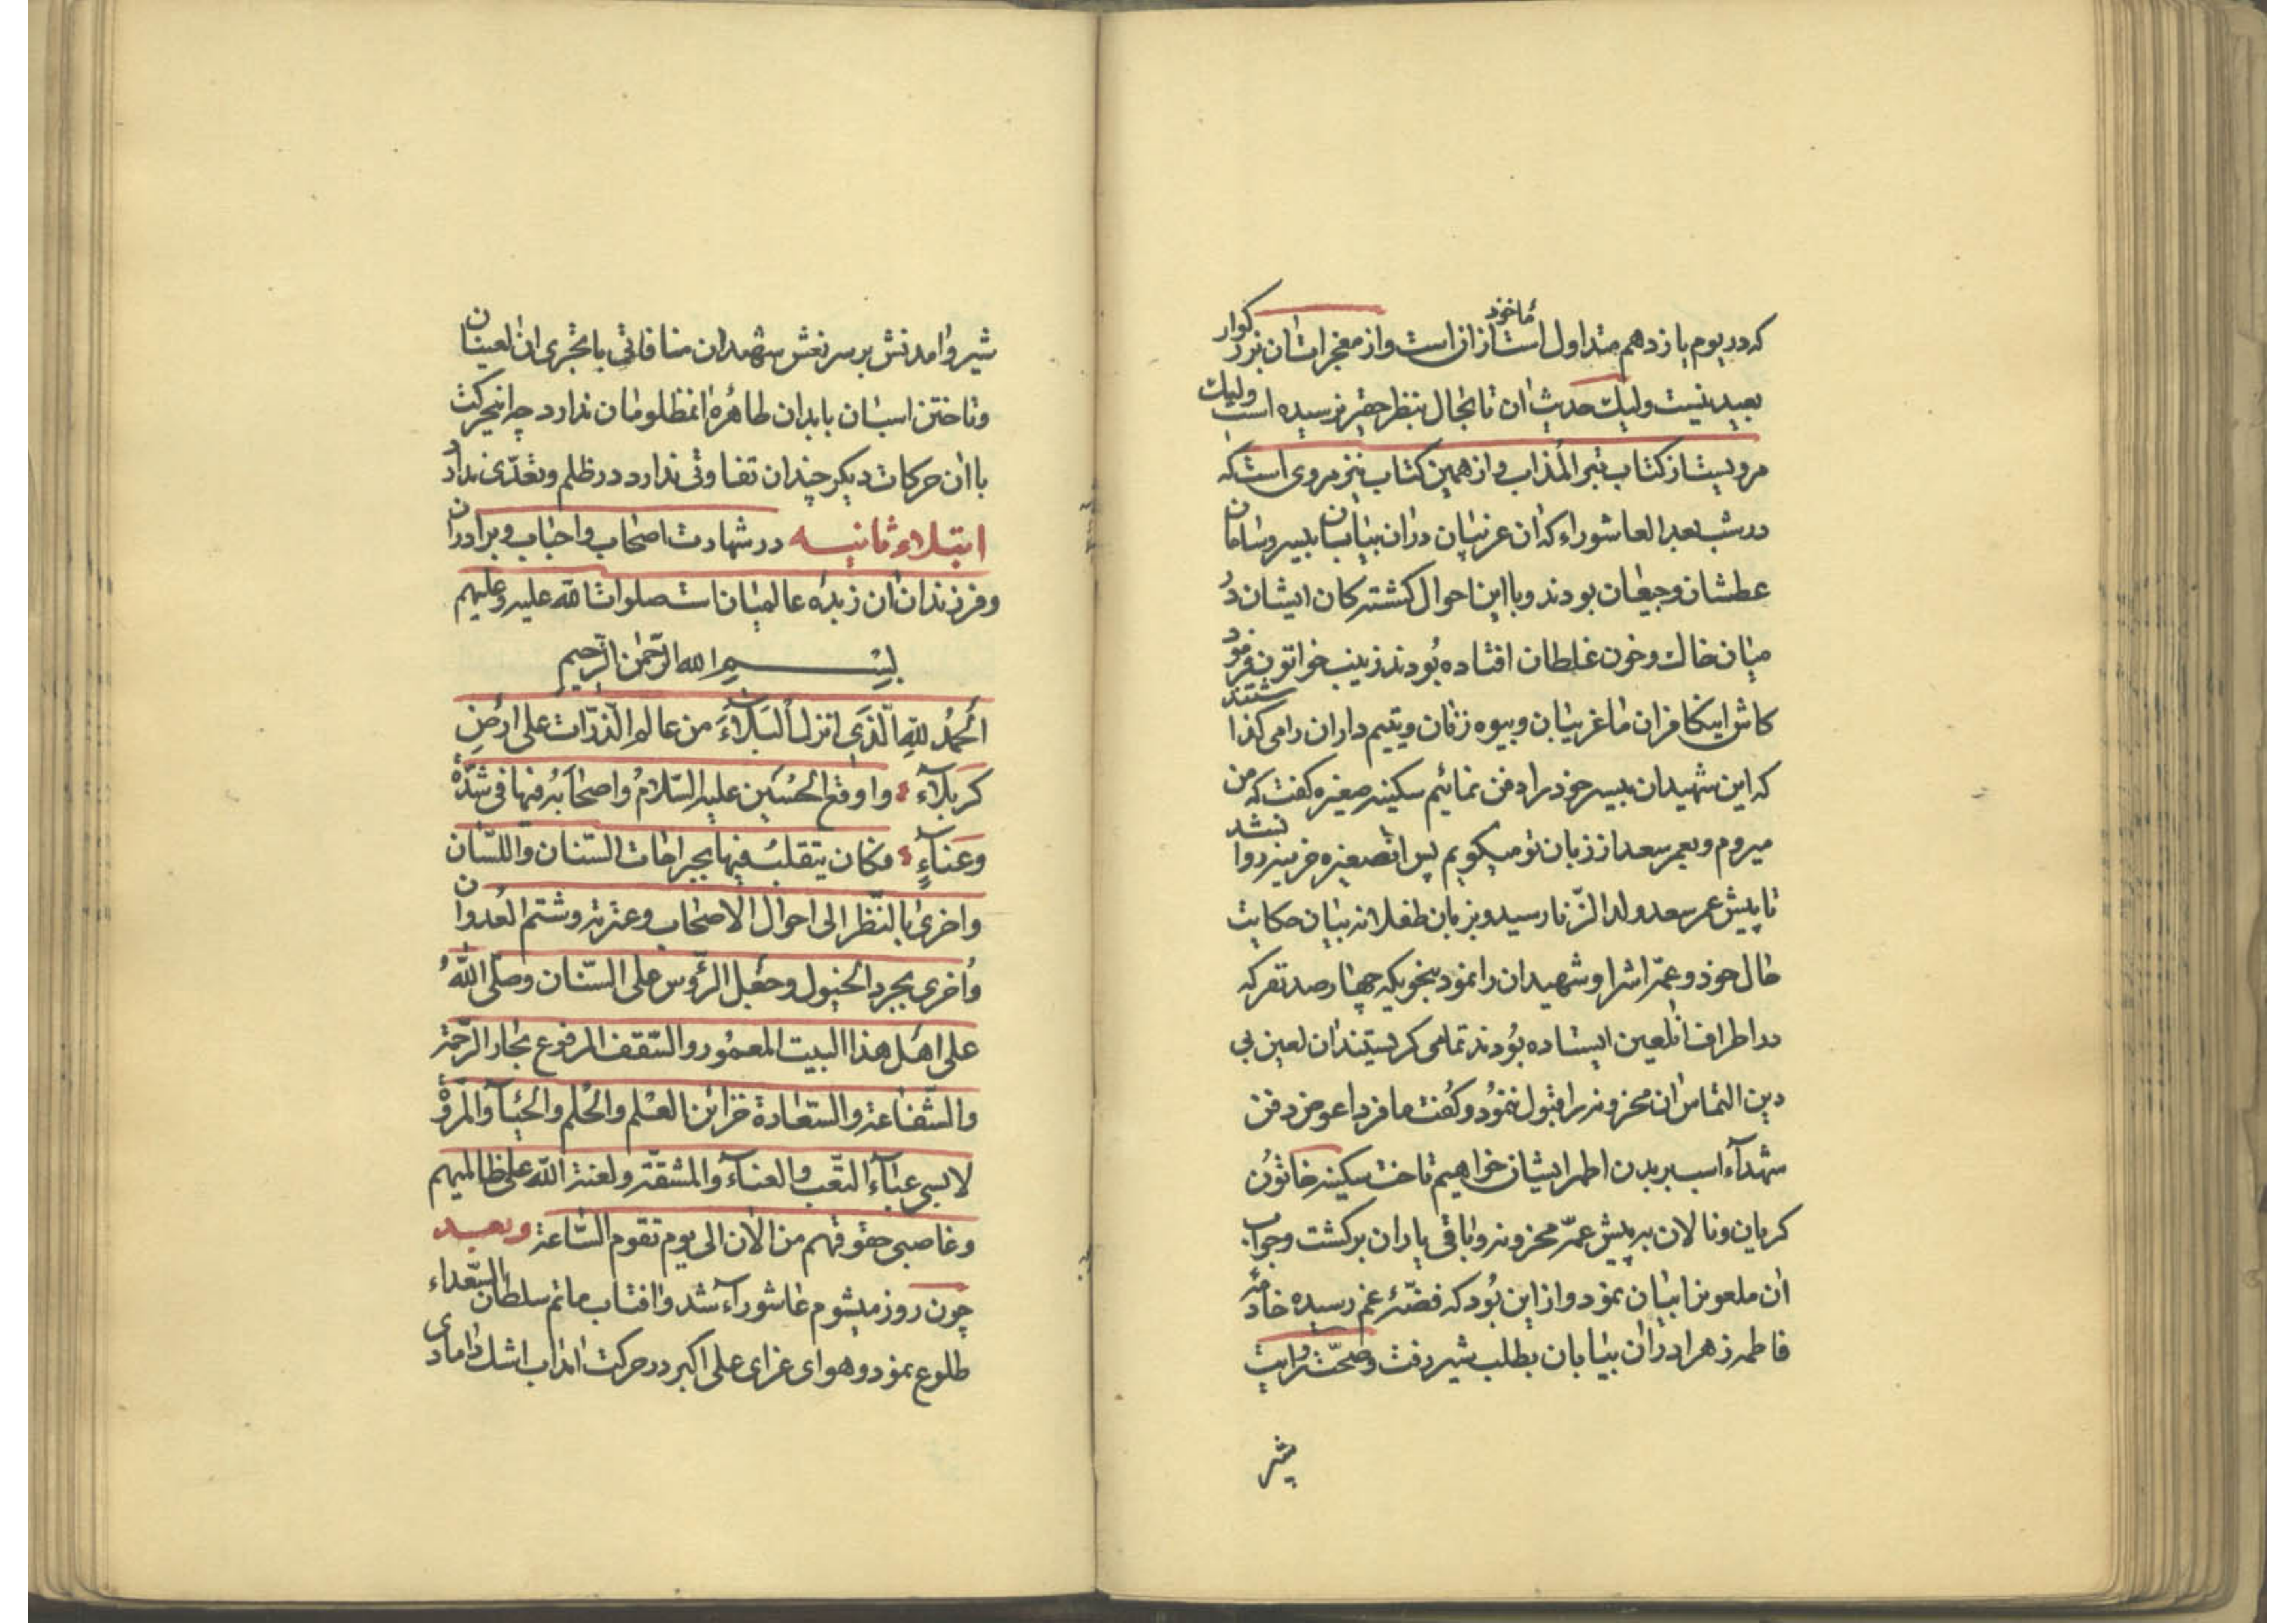 که در یوم یازدهم متداول است ماخوذ از ان است و از معجزات ان بزرگوار
بعید نیست ولیك حدیث ان تا بحال بنظر حقیر نرسیده است ولیك
مرویست از کتاب المذاب و از همین کتاب نیز مروی است که
در شب بعد العاشوراء که ان غریبان در ان بیابان بیسر و سامان
عطشان و جیعان بودند و با این احوال کشته کان ایشان در
میان خاك و خون غلطان افتاده بودند زینب خواتون فرمود
کاش اینکافران ما غریبان و بیوه زنان و یتیم داران را می کذاشتند
که این شهیدان بیسر خود را دفن نمائیم سکینه صغیره کفت که من
میروم و بعمر سعد از زبان تو میکویم پس انصغیره حزینه روانشد
تا پیش عمر سعد ولد الزنا رسید و بزبان طفلانه بیان حکایت
حال خود و عمه اش را و شهیدان را نمود بنحویکه چهارصد نفر که
در اطراف انلعین ایستاده بودند تمامی کریستند ان لعین بی
دین التماس ان محزونه را قبول ننمود و کفت ما فردا عوض دفن
شهدآء اسب بر بدن اطهر ایشان خواهیم تاخت سکینه خاتون
کریان و نالان به پیش عمه محزونه و باقی یاران برکشت و جواب
ان ملعون را بیان نمود و از این بود که فضه غم رسیده خادمه
فاطمه زهرا در ان بیابان بطلب شیر رفت و صحت روایت
شیر
شیر و امدنش بر سر نعش شهیدان منافاتی با تجری ان لعینان
و تاختن اسبان بابدان طاهره انمظلومان ندارد چه اینحرکت
با ان حرکات دیکر چندان تفاوتی ندارد در ظلم و تعدی نداد
ابتلاء ثانیه در شهادت اصحاب و احباب و برادران
و فرزندان ان زبده عالمیان است صلوات الله علیه و علیهم
بسم الله الرحمن الرحیم
الحمد لله الذی انزل البلآء من عالم الذرات علی ارض
کربلآء و اوقع الحسین علیه السلام و اصحابه فیها فی شدة
و عنآء فکان یتقلب فیها بجراحات السنان و اللسان
و اخری بالنظر الی احوال الاصحاب و عترته و شتم العدوان
و اخری بجرد الخیول و حمل الرؤس علی السنان و صلی الله
علی اهل هذا البیت المعمور و السقف المرفوع بحار الرحمة
و الشفاعة و السعادة خزائن العلم و الحلم و الحیآء و المروة
لابسی عبآء التعب و العنآء و المشقة و لعنة الله علی ظالمیهم
و غاصبی حقوقهم من الان الی یوم تقوم الساعة و بعد
چون روز میشوم عاشورآء شد و افتاب ماتم سلطان السعداء
طلوع نمود و هوای عزای علی اکبر در حرکت امد اب اشك دامادی